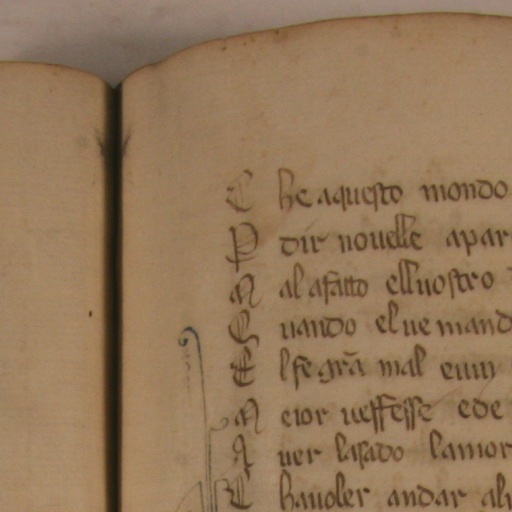 C he aquesto mondo
P dir nouelle apar
M al afatto elluostro
Q uando el ue mand
E l fe grā mal eum
M eior uesfesse ede
A uer lasado lamor
C hauoler andar